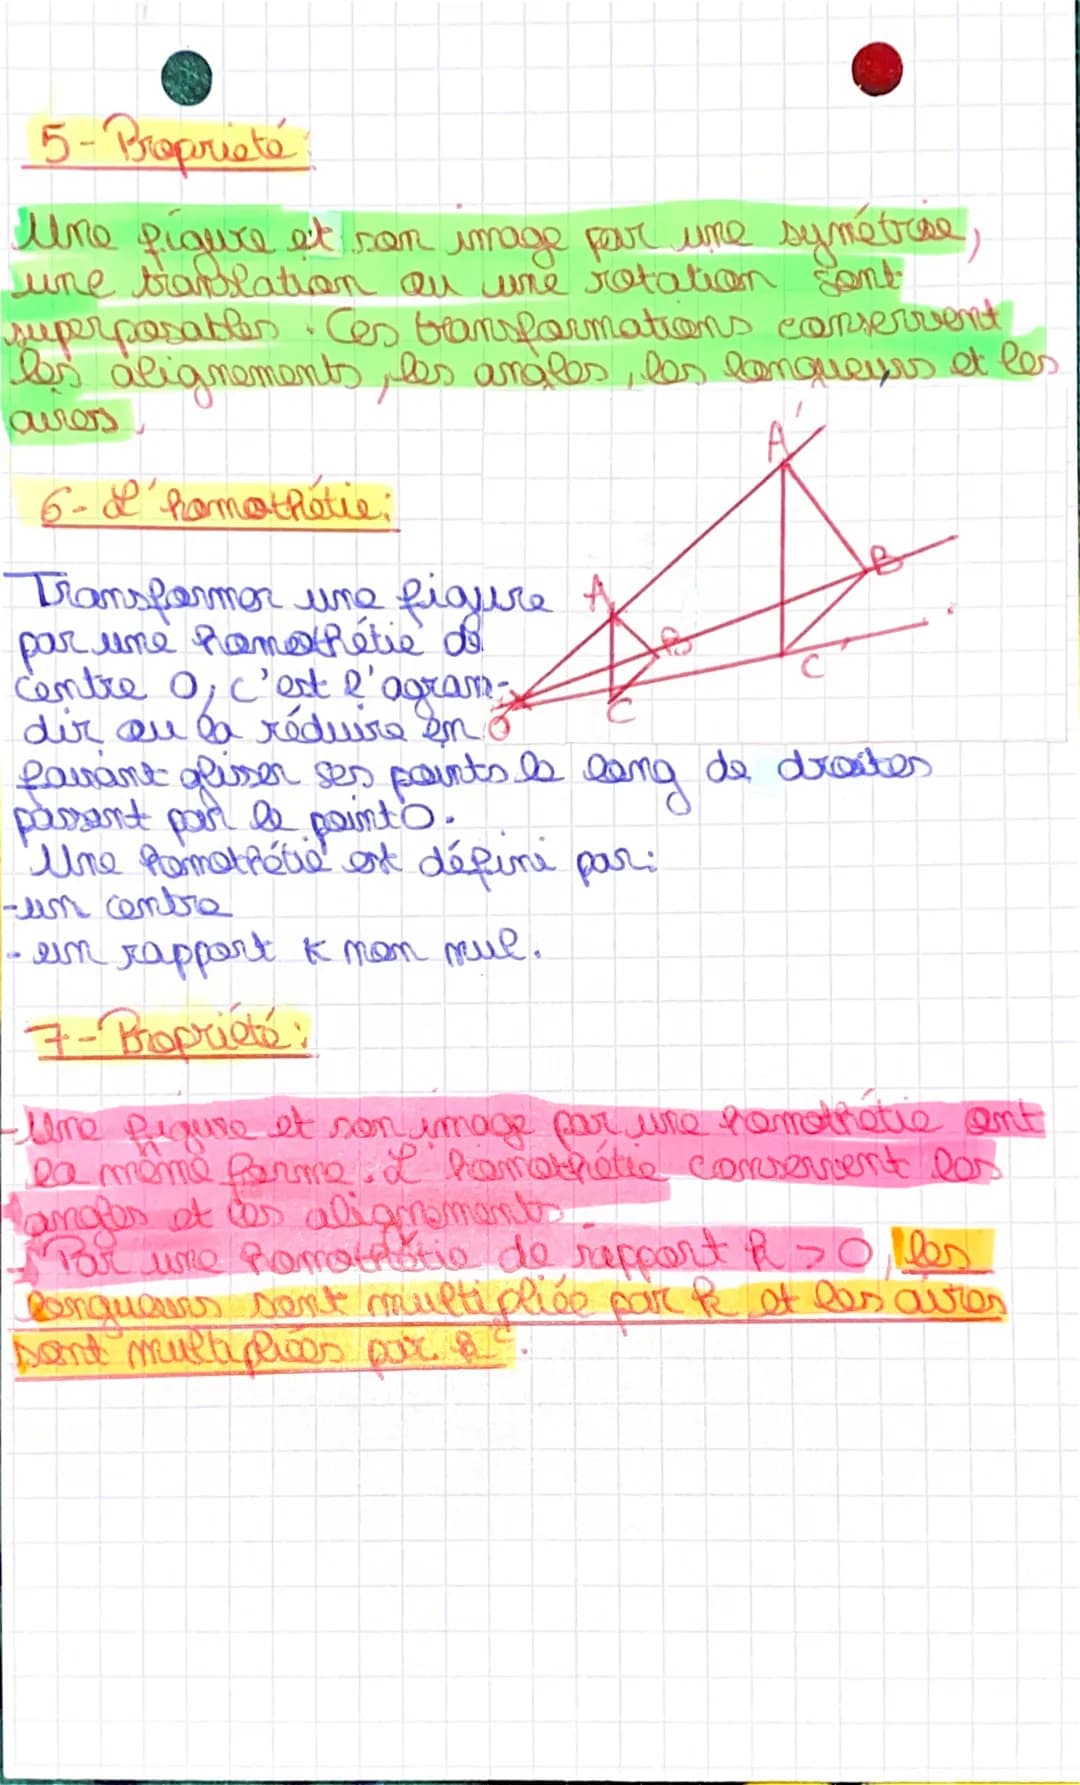 5-Propriété:
Une figure et son image par une symétrie,
une translation ou une rotation sont
superposables. Ces transformations conservent
les alignements, les angles, les longueurs et les
aires.
A'
6-L'homothétie:
B
Transformer une figure
A
par une homothétie de
B
C'
centre O, c'est l'agran-
C
dir ou la réduire en
O
faisant glisser ses points le long de droites
passant par le point O.
Une homothétie est défini par:
-un centre
-un rapport k non nul.
7-Propriété:
-Une figure et son image par une homothétie ont
la même forme. L'homothétie conservent les
angles et les alignements
- Par une homothétie de rapport k > 0, les
longueurs sont multipliée par k et les aires
sont multipliées par k².